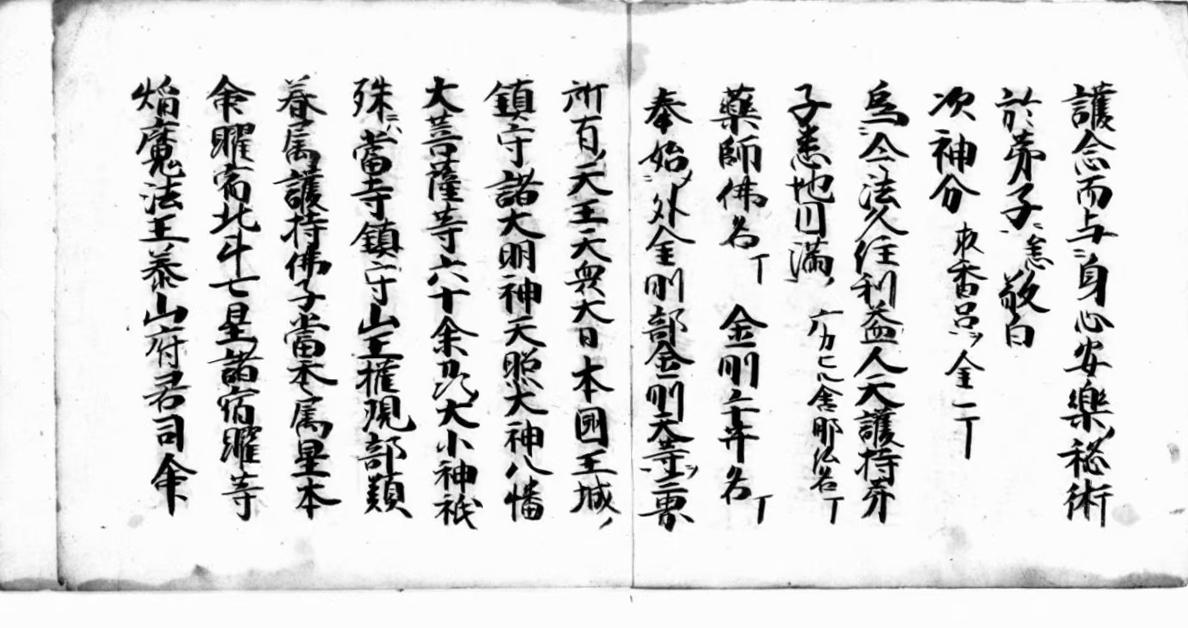 護念而与身心安樂秘術
於弟子悉敬白
次神分 取香呂ッ金一丁
為令法久住利益人天護持弟
子悉地円満
薬師佛名丁 金剛手井名丁
奉始外金剛部金剛天等三界
所有天王天衆大日本國王城ノ
鎮守諸大明神天照大神八幡
大菩薩等六十余乃大小神祇
殊ニハ當寺鎮守山王権現部類
眷属護持佛子當本属星本
命曜宿北斗七星諸宿曜等
焔魔法王泰山府君司命